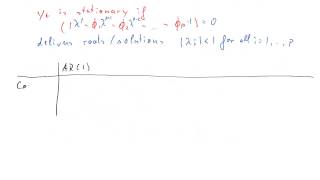 Yt is stationary if
(|λ^p - ϕ₁λ^(p-1) - ϕ₂λ^(p-2) - ... - ϕp·1|) = 0
delivers roots/solutions |λi| < 1 for all i = 1, .., p
AR(1)
Co